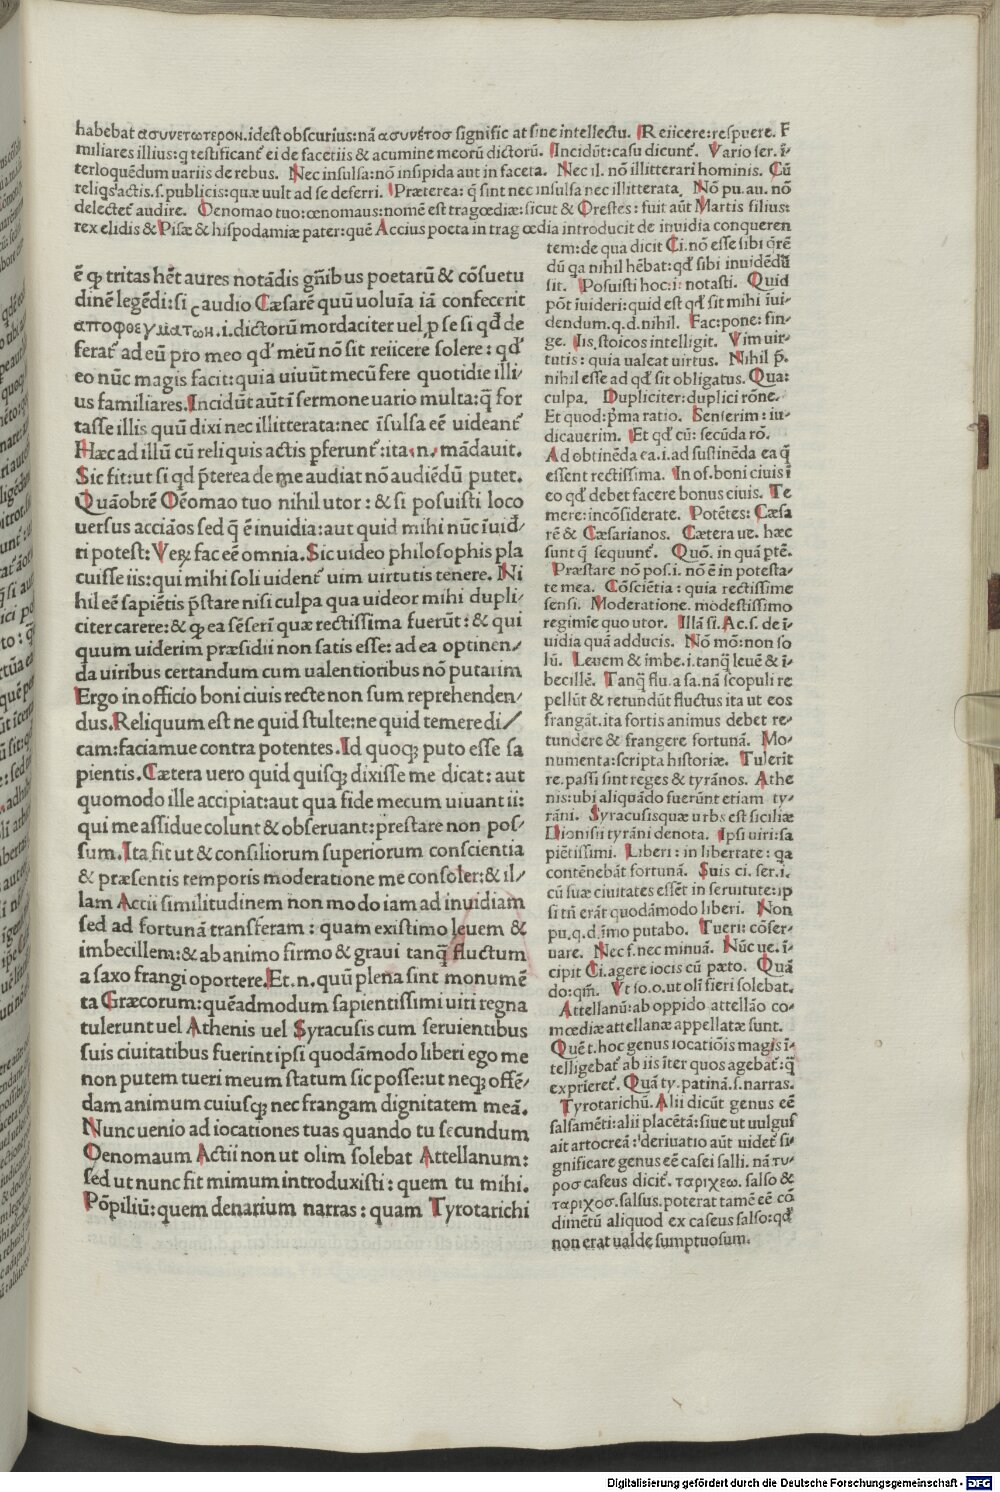 habebat ασυνετωτερον.idest obscurius:nā ασυνέτοσ signific at sine intellectu. Reiicere:respuere. F
miliares illius:q testificant̄ ei de facetiis & acumine meorū dictorū. Incidūt:casu dicunt̄. Vario ser.ī-
terloquēdum uariis de rebus. Nec insulsa:nō insipida aut in faceta. Nec il. nō illitterari hominis. Cū
reliqs actis.s.publicis:quæ uult ad se deferri. Præterea: q̄ sint nec insulsa nec illitterata. Nō pu.au. nō
delectet̄ audire. Oenomao tuo:œnomaus:nomē est tragœdiæ:sicut & Orestes: fuit aūt Martis silius:
rex elidis & Pisæ & hispodamiæ pater:quē Accius poeta in trag œdia introducit de inuidia conqueren
ē ꝙ tritas hēt aures notādis gn̄ibus poetarū & cōsuetu
dinē legēdi:si audio Cæsarē quū uoluīa iā confecerit
αποφθεγματων.i.dictorū mordaciter uel ꝓ se si qd̄ de
ferat̄ ad eū pro meo qd̄ meū nō sit reiicere solere: qd̄
eo nūc magis facit:quia uiuūt mecū fere quotidie illi/
us familiares.Incidūt aūt ī sermone uario multa:q̄ for
tasse illis quū dixi nec illitterata:nec īsulsa eē uideant̄
Hæc ad illū cū reliquis actis ꝑferunt̄:ita.n.mādauit.
Sic fit:ut si qd p̄terea de me audiat nō audiēdū putet.
Quāobrē Oēomao tuo nihil utor: & si posuisti loco
uersus acciāos sed q̄ ē inuidia:aut quid mihi nūc īuid/
ri potest: Veꝝ fac eē omnia.Sic uideo philosophis pla
cuisse iis:qui mihi soli uident̄ uim uirtutis tenere. Ni
hil eē sapiētis p̄stare nisi culpa qua uideor mihi dupli/
citer carere:& ꝙ ea sēserī quæ rectissima fuerūt: & qui
quum uiderim præsidii non satis esse: ad ea optinen/
da uiribus certandum cum ualentioribus nō putarim
Ergo in officio boni ciuis recte non sum reprehenden/
dus.Reliquum est ne quid stulte:ne quid temere di/
cam:faciamue contra potentes.Id quoqꝫ puto esse sa
pientis.Cætera uero quid quisqꝫ dixisse me dicat: aut
quomodo ille accipiat:aut qua fide mecum uiuant ii:
qui me assidue colunt & obseruant:prestare non pos/
sum.Ita fit ut & consiliorum superiorum conscientia
& præsentis temporis moderatione me consoler:& il/
lam Actii similitudinem non modo iam ad inuidiam
sed ad fortunā transferam : quam existimo leuem &
imbecillem:& ab animo firmo & graui tanq̄ fluctum
a saxo frangi oportere.Et.n.quū plena sint monumē
ta Græcorum:quēadmodum sapientissimi uiri regna
tulerunt uel Athenis uel Syracusis cum seruientibus
suis ciuitatibus fuerint ipsi quodāmodo liberi ego me
non putem tueri meum statum sic posse:ut neqꝫ offē/
dam animum cuiusqꝫ nec frangam dignitatem meā.
Nunc uenio ad iocationes tuas quando tu secundum
Oenomaum Actii non ut olim solebat Attellanum:
sed ut nunc fit mimum introduxisti: quem tu mihi.
Pōpiliū:quem denarium narras: quam Tyrotarichi
tem:de qua dicit Ci.nō esse sibi q̄rē
dū qa nihil hēbat:qd̄ sibi inuidēdū
sit. Posuisti hoc:i: notasti. Quid
pōt īuideri:quid est qd̄ sit mihi īui-
dendum.q.d.nihil. Fac:pone: fin-
ge. Iis.stoicos intelligit. Vim uir-
tutis: quia ualeat uirtus. Nihil p̄.
nihil esse ad qd̄ sit obligatus. Qua:
culpa. Dupliciter:duplici rōne.
Et quod:p̄ma ratio. Senserim: iu-
dicauerim. Et qd̄ cū: secūda rō.
Ad obtinēda ea.i.ad sustinēda ea q̄
essent rectissima. In of.boni ciuis ī
eo qd̄ debet facere bonus ciuis. Te
mere:incōsiderate. Potētes: Cæsa
rē & Cæsarianos. Cætera ue. hæc
sunt q̄ sequunt̄. Quō. in quā ptē.
Præstare nō pos.i.nō ē in potesta-
te mea. Cōsciētia: quia rectissime
sensi. Moderatione. modestissimo
regimīe quo utor. Illā si.Ac.s. de ī-
uidia quā adducis. Nō mō: non so
lū. Leuem & imbe.i.tanq̄ leuē & ī-
becillē. Tanq̄ flu.a sa.nā scopuli re
pellūt & retundūt fluctus ita ut eos
frangāt.ita fortis animus debet re-
tundere & frangere fortunā. Mo-
numenta:scripta historiæ. Tulerīt
re.passi sint reges & tyrānos. Athe
nis:ubi aliquādo fuerūnt etiam ty-
rāni. Syracusisquæ urbs est siciliæ
Dionisii tyrāni denota. Ipsi uiri:sa
piētissimi. Liberi: in libertate: qa
contēnebāt fortunā. Suis ci. ser.i.
cū suæ ciuitates essēt in seruitute:ip
si tn̄ erāt quodāmodo liberi. Non
pu.q.d.īmo putabo. Tueri: cōser-
uare. Nec f.nec minuā. Nūc ue.ī-
cipit Ci.agere iocis cū pæto. Quā
do:qm̄. Vt so.o.ut oli fieri solebat.
Attellanū:ab oppido attellāo co-
mœdiæ attellanæ appellatæ sunt.
Quē t.hoc genus iocatiōis magis ī-
telligebat̄ ab iis īter quos agebat̄:q̄
exprieret̄. Quā ty.patinā.s.narras.
Tyrotarichū.Alii dicūt genus eē
salsamēti:alii placētā:siue ut uulgus
ait artocreā:deriuatio aūt uidet̄ si-
gnificare genus eē casei salli. nā τυ-
ροσ caseus dicit̄. ταριχεω. salso &
ταριχοσ.salsus.poterat tamē eē cō
dimētū aliquod ex caseus salso:qd̄
non erat ualde sumptuosum.
Digitalisierung gefördert durch die Deutsche Forschungsgemeinschaft - DFG